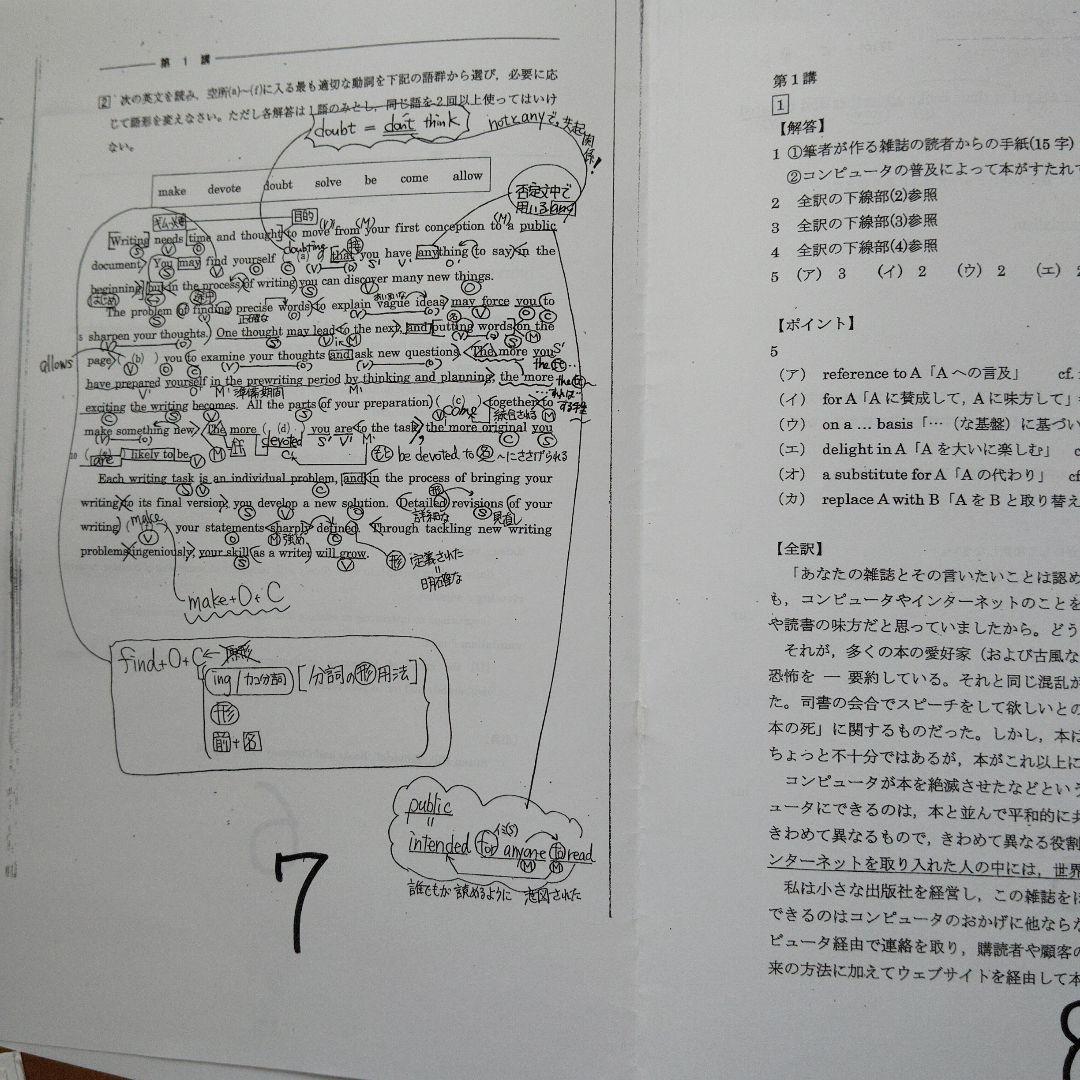 第 1 講
2 次の英文を読み，空所(a)~(f)に入る最も適切な動詞を下記の語群から選び，必要に応
じて語形を変えなさい。ただし各解答は1語のみとし，同じ語を2回以上使ってはいけ
ない。
doubt = don't think
notとanyで、共起関係!
make devote doubt solve be come allow
否定文中で
用いるany
目的
Writing needs time and thought to move from your first conception to a public
doubting
document. You may find yourself (a) that you have anything to say in the
beginning, but in the process of writing you can discover many new things.
はじめ
The problem of finding precise words to explain vague ideas may force you to
正確な
あいまいな
5 sharpen your thoughts. One thought may lead to the next, and putting words on the
allows
page ( (b) ) you to examine your thoughts and ask new questions. The more you
have prepared yourself in the prewriting period by thinking and planning, the more
準備期間
exciting the writing becomes. All the parts of your preparation ( (c) ) together to
come
統合される
make something new. The more ( (d) ) you are to the task, the more original you
devoted
10 ( (e) ) likely to be.
are
be devoted to 名 ~にささげられる
Each writing task is an individual problem, and in the process of bringing your
writing to its final version, you develop a new solution. Detailed revisions of your
詳細な
見直し
make
writing ( ) your statements sharply defined. Through tackling new writing
強め
problems ingeniously, your skill as a writer will grow.
形 定義された
=
明確な
make+O+C
find+O+C ← 原形
ing/カコ分詞 [分詞の形用法]
形
前+名
public
=
intended for anyone to read
誰でもが読めるように 意図された
7
第1講
1
【解答】
1 ①筆者が作る雑誌の読者からの手紙(15字)
②コンピュータの普及によって本がすたれて
2 全訳の下線部(2)参照
3 全訳の下線部(3)参照
4 全訳の下線部(4)参照
5 (ア) 3 (イ) 2 (ウ) 2 (エ) 2
【ポイント】
5
(ア) reference to A「Aへの言及」 cf.
(イ) for A「Aに賛成して，Aに味方して」
(ウ) on a … basis「…(な基盤)に基づい
(エ) delight in A「Aを大いに楽しむ」
(オ) a substitute for A「Aの代わり」 cf
(カ) replace A with B「AをBと取り替え
【全訳】
「あなたの雑誌とその言いたいことは認め
も，コンピュータやインターネットのことを
や読書の味方だと思っていましたから。どう
それが，多くの本の愛好家（および古風な
恐怖を ― 要約している。それと同じ混乱が
た。司書の会合でスピーチをして欲しいとの
本の死」に関するものだった。しかし，本は
ちょっと不十分ではあるが，本がこれ以上に
コンピュータが本を絶滅させたなどという
ュータにできるのは，本と並んで平和的に共
きわめて異なるもので，きわめて異なる役割
ンターネットを取り入れた人の中には，世界
私は小さな出版社を経営し，この雑誌をほ
できるのはコンピュータのおかげに他ならな
ピュータ経由で連絡を取り，購読者や顧客の
来の方法に加えてウェブサイトを経由して本